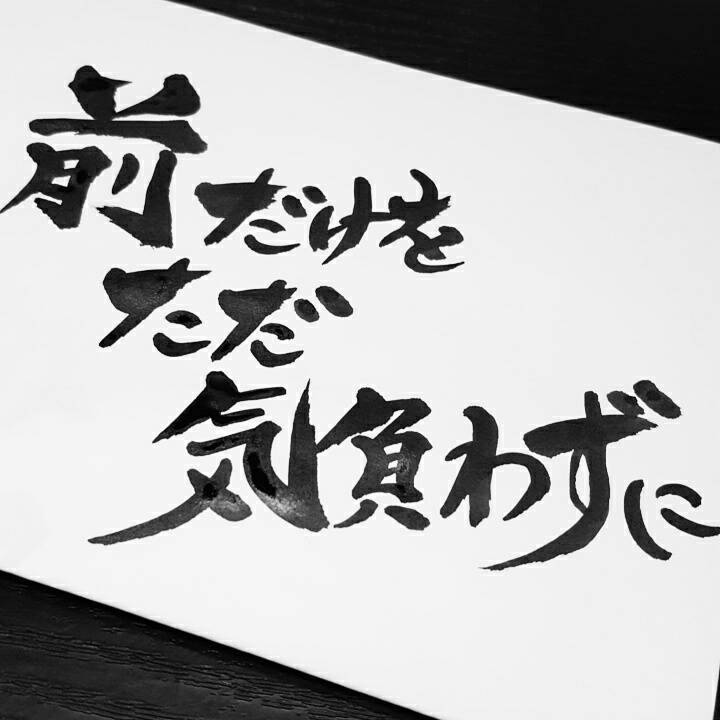 前だけを
ただ
気負わずに